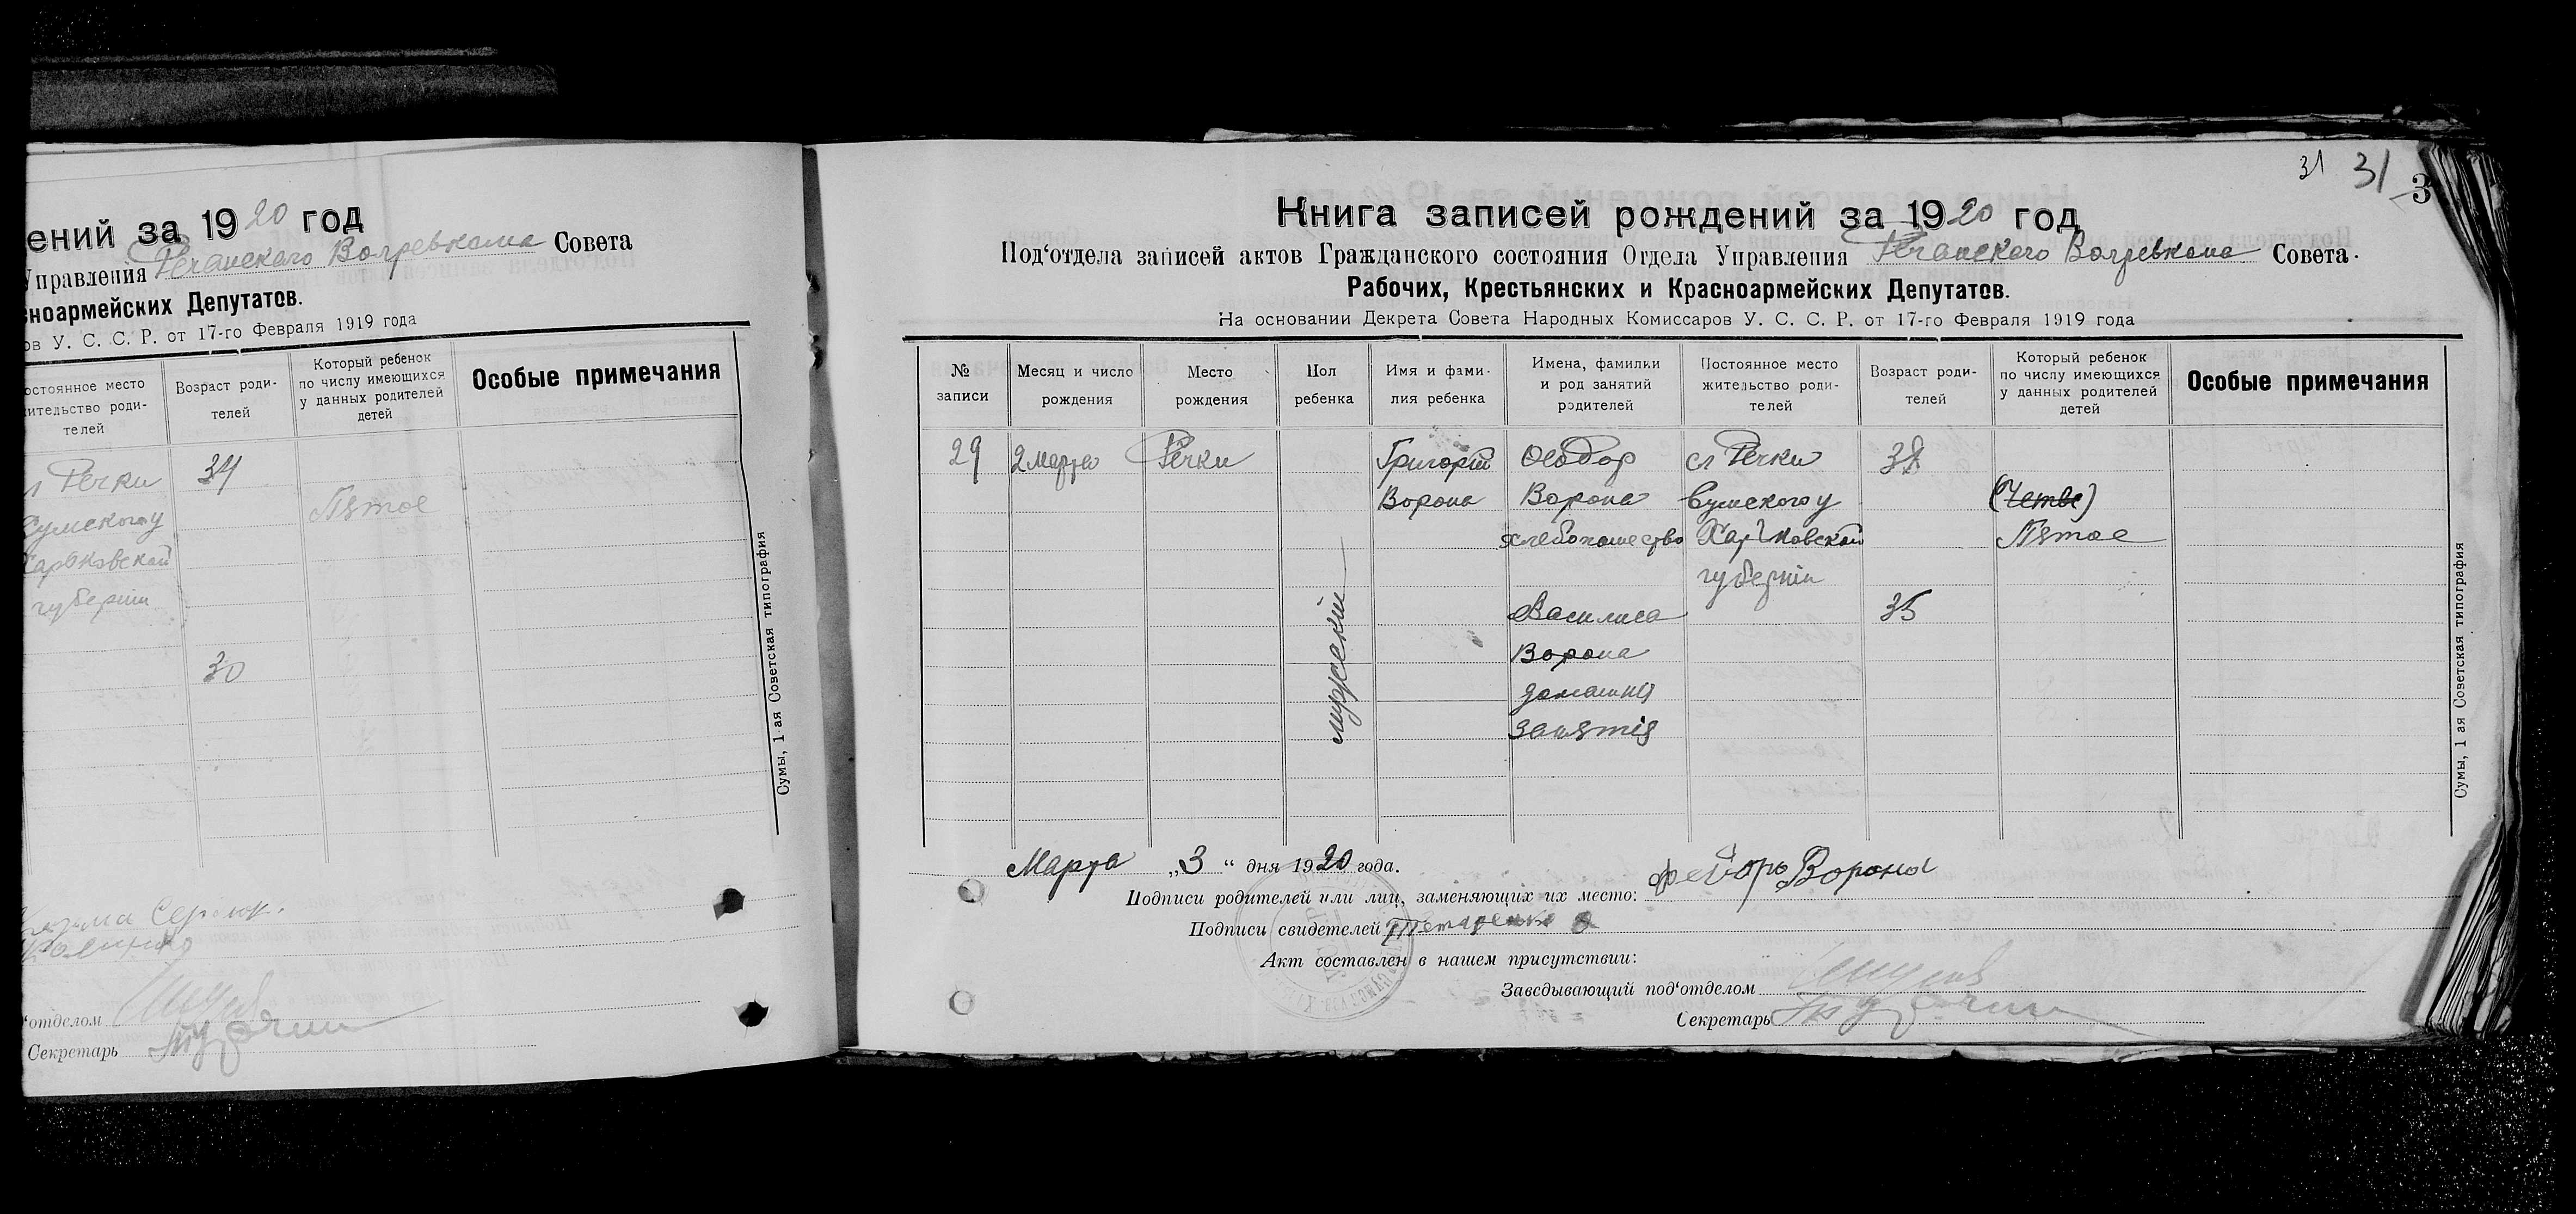 ений за 1920 год
Управления Речанского Волревкома Совета
сноармейских Депутатов.
ов У. С. С. Р. от 17-го Февраля 1919 года
остоянное место
ительство роди-
телей
Возраст роди-
телей
Который ребенок
по числу имеющихся
у данных родителей
детей
Особые примечания
л Речки
Сумского у
Харьковской
губернии
34
30
Пятое
Сумы, 1-ая Советская типография
отделом
Секретарь
31 31 3
Книга записей рождений за 1920 год
Под‘отдела записей актов Гражданского состояния Отдела Управления Речанского Волревкома Совета.
Рабочих, Крестьянских и Красноармейских Депутатов.
На основании Декрета Совета Народных Комиссаров У. С. С. Р. от 17-го Февраля 1919 года
№
записи
Месяц и число
рождения
Место
рождения
Пол
ребенка
Имя и фами-
лия ребенка
Имена, фамилки
и род занятий
родителей
Постоянное место
жительство роди-
телей
Возраст роди-
телей
Который ребенок
по числу имеющихся
у данных родителей
детей
Особые примечания
29
2 марта
Речки
мужскій
Григорій
Ворона
Ѳеодор
Ворона
хлебопашество
Василиса
Ворона
домашнія
занятія
сл Речки
Сумского у
Харьковской
губерніи
38
35
(Четве)
Пятое
Сумы, 1 ая Советская типография
Марта „3“ дня 1920 года.
Подписи родителей или лиц, заменяющих их место: Федоръ Ворона
Подписи свидетелей
Акт составлен в нашем присутствии:
Заведывающий под‘отделом
Секретарь